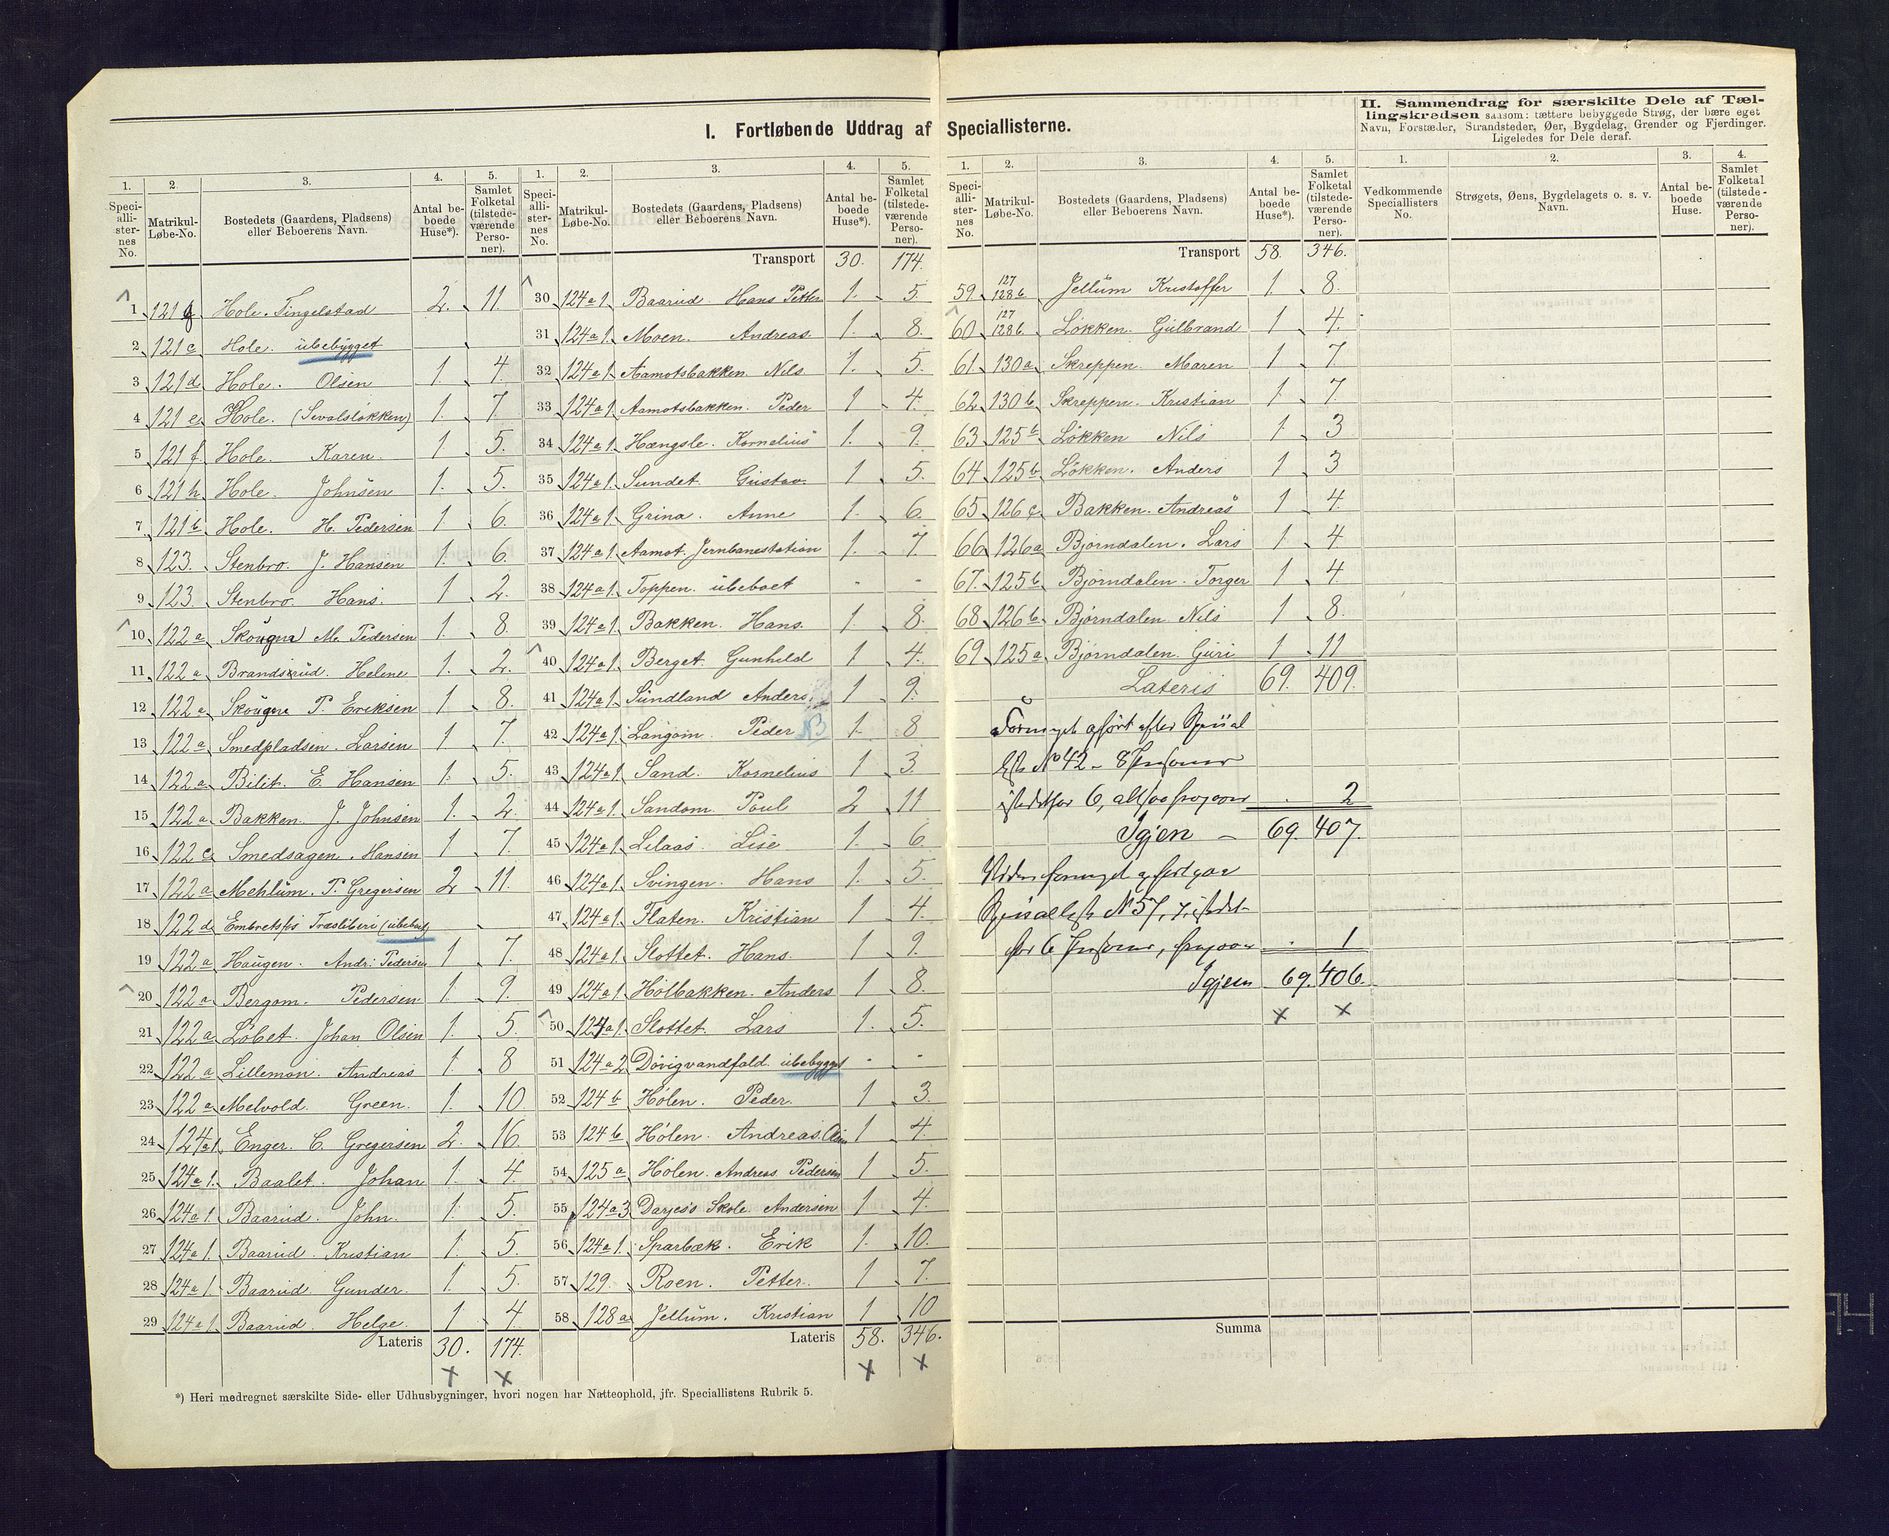 I. Fortløbende Uddrag af Speciallisterne.
1. 2. 3. 4. 5.
Speciallisternes No. Matrikul-Løbe-No. Bostedets (Gaardens, Pladsens) eller Beboerens Navn. Antal beboede Huse*). Samlet Folketal (tilstedeværende Personer).
1 121 Hole. Tingelstad 2. 11.
2 121c Hole. ubebygget
3 121d Hole. Olsen 1 4.
4 121e Hole. (Sevalsløkken) 1. 7.
5 121f Hole. Karen. 1 5.
6 121h Hole. Johnsen 1. 5.
7 121b Hole. H. Pedersen 1 6.
8 123. Stenbro. J. Hansen 1. 6.
9 123. Stenbro. Hans. 1 2.
10 122a Skougna M. Pedersen 1. 8.
11 122a Brandsrud. Helene 1. 2.
12 122a Skougne P. Eriksen 1 8.
13 122a Smedpladsen. Larsen 1 7.
14 122a Bilit. E. Hansen 1. 5.
15 122a Bakken. J. Johnsen 1. 2.
16 122c Smedsagen. Hansen 1 7.
17 122a Mehlum. P. Gregersen 2 11.
18 122d (ubeboet)
19 122a Haugen. Andr: Pedersen 1 7.
20 122a Bergom. Pedersen 1. 9.
21 122a Løbet. Johan Olsen 1 5.
22 122a Lillemon. Andreas 1. 8
23 122a Melvold. Green. 1. 10.
24 124a1 Enger. C. Gregersen 2. 16.
25 124a1. Baalet. Johan 1. 4.
26 124a1. Baarud. John. 1. 5.
27 124a1. Baarud. Kristian 1. 5.
28 124a1. Baarud Gunder. 1. 5.
29 124a1 Baarud Helge. 1 4.
Lateris 30. 174.
x x
1. 2. 3. 4. 5.
Speciallisternes No. Matrikul-Løbe-No. Bostedets (Gaardens, Pladsens) eller Beboerens Navn. Antal beboede Huse*). Samlet Folketal (tilstedeværende Personer).
Transport 30. 174.
30 124a1 Baarud. Hans Petter 1. 5.
31 124a1 Moen. Andreas 1. 8.
32 124a1 Aamotsbakken. Nils 1. 5
33 124a1 Aamotsbakken. Peder 1 4.
34 124a1 Hængsle. Kornelius 1. 9.
35 124a1 Sundet. Gustav. 1 5.
36 124a1 Grina. Anne 1. 6.
37 124a1 Aamot. Jernbanestation 1. 7
38 124a1 Toppen. ubeboet - -
39 124a1. Bakken. Hans. 1. 8.
40 124a1. Berget. Gunhild 1 4.
41 124a1. Sundland Anders 1 9.
42 124a1. Langom. Peder NB 1. 8
43 124a1. Sand. Kornelius 1 3.
44 124a1 Sandom. Poul 2 11
45 124a1 Lilaas. Lise 1. 6
46 124a1 Svingen. Hans 1. 5.
47 124a1. Flaten. Kristian 1 4.
48 124a1 Slottet. Hans. 1. 9.
49 124a1 Holbakken. Anders 1 8.
50 124a1. Slottet. Lars 1. 5.
51 124a2 Dovigvandfald. ubebygget - -
52 124b Hølen. Peder. 1 3.
53 124b Hølen. Andreas. Olsen 1 4.
54 125a Hølen. Andreas Pedersen 1 5.
55 124a3 Darjes's Skole. Andersen 1 4.
56 124a1. Sparbæk. Erik 1. 10.
57 129. Roen. Petter. 1 7.
58 128a Jellum. Kristian 1 10
Lateris 58. 346.
x x
*) Heri medregnet særskilte Side- eller Udhusbygninger, hvori nogen har Natteophold, jfr. Speciallistens Rubrik 5.
1. 2. 3. 4. 5.
Speciallisternes No. Matrikul-Løbe-No. Bostedets (Gaardens, Pladsens) eller Beboerens Navn. Antal beboede Huse*). Samlet Folketal (tilstedeværende Personer).
Transport 58. 346.
59 127 128b Jellum Kristoffer 1 8.
60 127 128b Løkken. Gulbrand 1 4.
61 130a Skreppen. Maren 1 7
62 130b Skreppen. Kristian 1 7
63 125b Løkken Nils 1 3
64 125b Løkken. Anders 1 3
65 126c Bakken. Andreas 1 4.
66 126a Bjørndalen. Lars 1 4
67. 125b Bjørndalen. Torger 1 4.
68 126b Bjørndalen Nils 1 8.
69 125a Bjørndalen. Guri 1 11
Lateris 69. 409.
efter
No 42 - 8 Personer
istedetfor 6, 2
Igjen - 69. 407.
No 57, 7, istedet-
for 6 Personer, 1
Igjen 69. 406.
x x
Summa
II. Sammendrag for særskilte Dele af Tællingskredsen saasom: tættere bebyggede Strøg, der bære eget Navn, Forstæder, Strandsteder, Øer, Bygdelag, Grender og Fjerdinger. Ligeledes for Dele deraf.
1. 2. 3. 4.
Vedkommende Speciallisters No. Strøgets, Øens, Bygdelagets o. s. v. Navn. Antal beboede Huse. Samlet Folketal (tilstedeværende Personer).